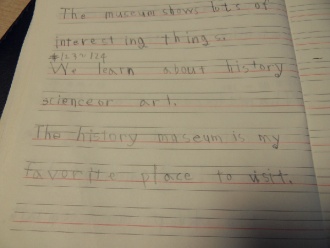 The museum shows lots of
interesting things.
We learn about history
science or art.
The history museum is my
favorite place to visit.